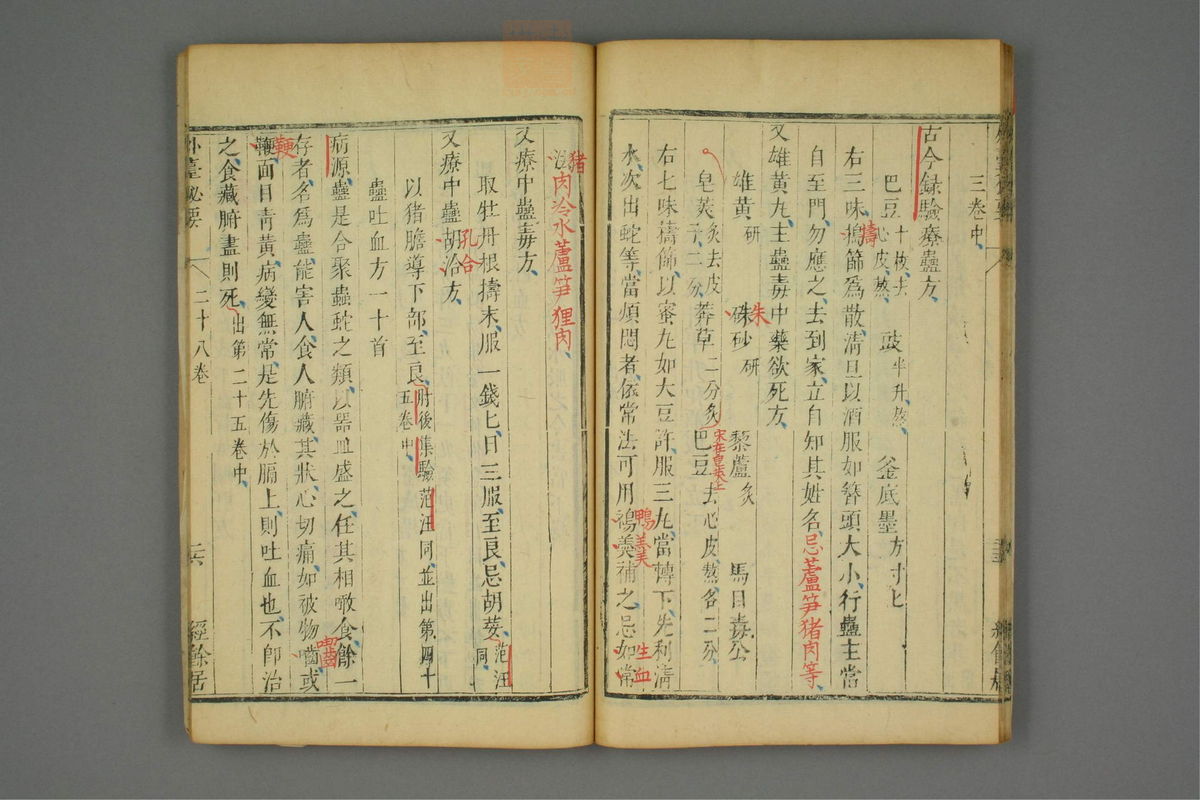 三卷中、
古今録驗療蠱方、
巴豆十枚去心皮熬、 豉半升熬、 釜底墨方寸匕
右三味、擣篩爲散、清旦以酒服如簪頭大小、行蠱主當
自至門、勿應之、去到家、立自知其姓名、忌蘆笋猪肉等、
又雄黄丸、主蠱毒中藥欲死方、
雄黄研 硃砂研 藜蘆炙 馬目毒公
皂莢炙去皮子二分 莽草二分炙 巴豆去心皮熬各二分、
宋在皂莢上
右七味、擣篩、以蜜丸如大豆許、服三丸、當轉下、先利清
水、次出蛇等、當煩悶者、依常法、可用鴨羮補之、忌如常
朱
擣
鴨羮
生血
猪肉冷水蘆笋狸肉、
又療中蠱毒方、
取牡丹根擣末、服一錢匕、日三服、至良、忌胡荽、范汪同、
又療中蠱胡洽方、
孔合
以猪膽導下部、至良、肘後集驗范汪同、並出第四十五卷中、
蠱吐血方一十首
病源、蠱是合聚蟲蛇之類、以器皿盛之、任其相噉食、餘一
存者、名爲蠱、能害人、食人腑藏、其狀、心切痛、如被物嚙、或
鞕、面目青黄、病變無常、是先傷於膈上、則吐血也、不即治
鞕
嚙
之、食藏腑盡則死、出第二十五卷中、
外臺秘要 二十八卷 二六 經餘居